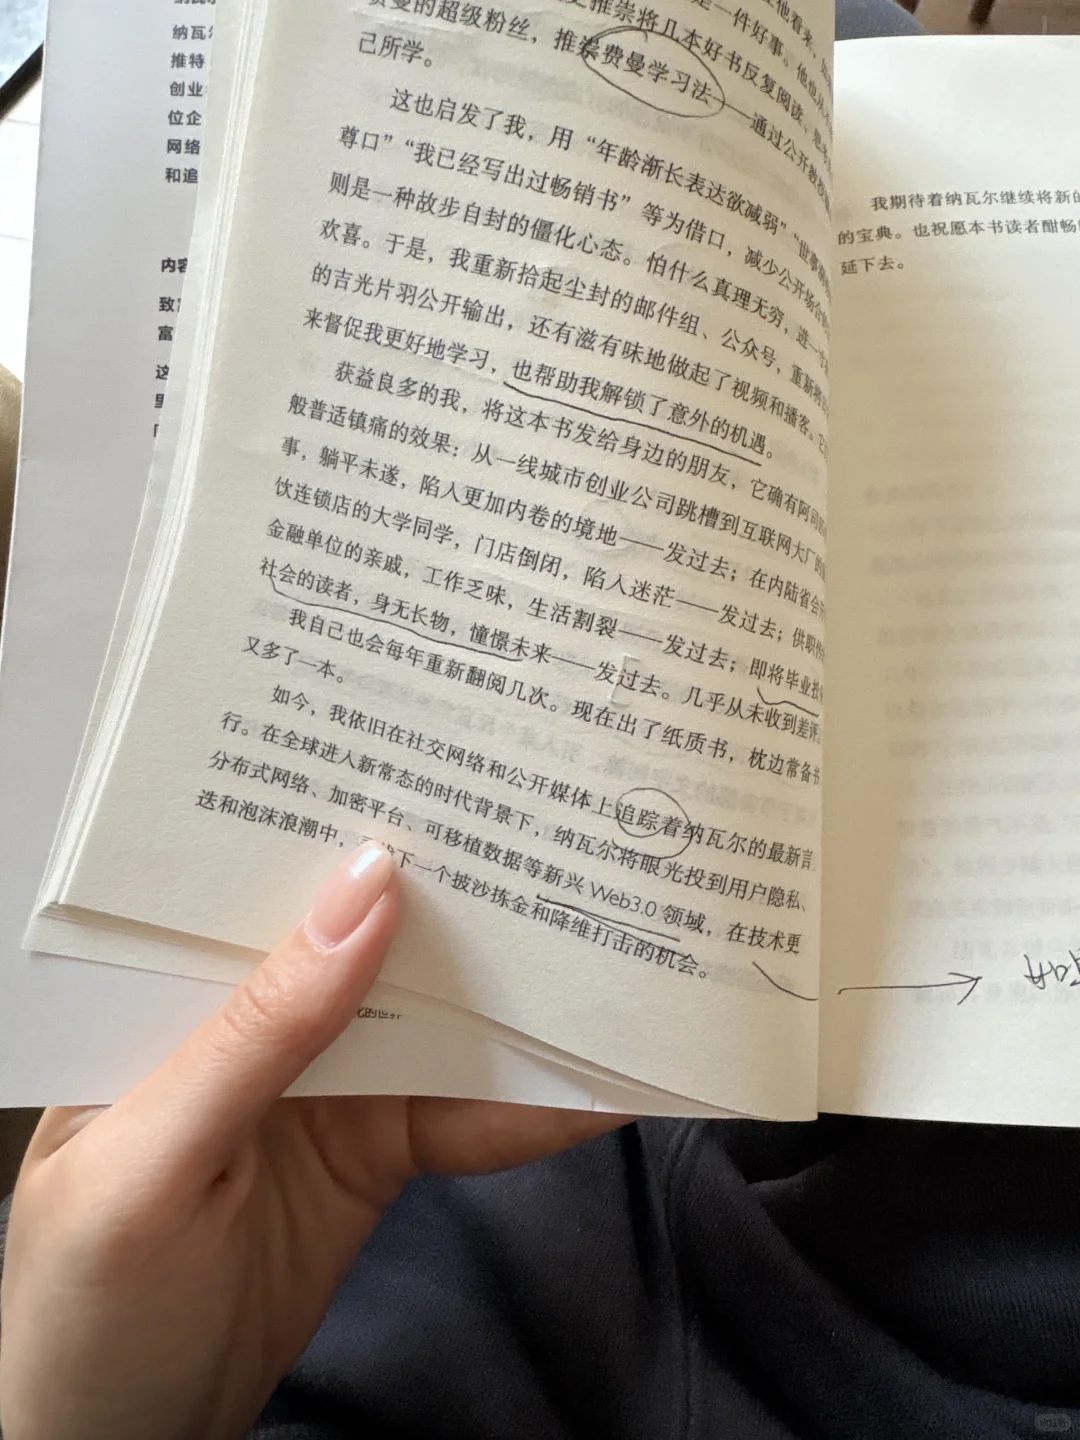 纳瓦
推特
创业
位企
网络
和追
内容
致富
富
这
里
费曼的超级粉丝，推崇费曼学习法——通过公开教授
己所学。
这也启发了我，用“年龄渐长表达欲减弱”“世事
尊口”“我已经写出过畅销书”等为借口，减少公开场合的
则是一种故步自封的僵化心态。怕什么真理无穷，进一寸
欢喜。于是，我重新拾起尘封的邮件组、公众号，重新将
的吉光片羽公开输出，还有滋有味地做起了视频和播客。它
来督促我更好地学习，也帮助我解锁了意外的机遇。
获益良多的我，将这本书发给身边的朋友，它确有阿司匹
般普适镇痛的效果：从一线城市创业公司跳槽到互联网大厂的
事，躺平未遂，陷入更加内卷的境地——发过去；在内陆省会
饮连锁店的大学同学，门店倒闭，陷入迷茫——发过去；供职
金融单位的亲戚，工作乏味，生活割裂——发过去；即将毕业
社会的读者，身无长物，憧憬未来——发过去。几乎从未收到差评。
我自己也会每年重新翻阅几次。现在出了纸质书，枕边常备书
又多了一本。
如今，我依旧在社交网络和公开媒体上追踪着纳瓦尔的最新言
行。在全球进入新常态的时代背景下，纳瓦尔将眼光投到用户隐私、
分布式网络、加密平台、可移植数据等新兴 Web3.0 领域，在技术更
迭和泡沫浪潮中，下一个披沙拣金和降维打击的机会。
我期待着纳瓦尔继续将新的
的宝典。也祝愿本书读者酣畅
延下去。